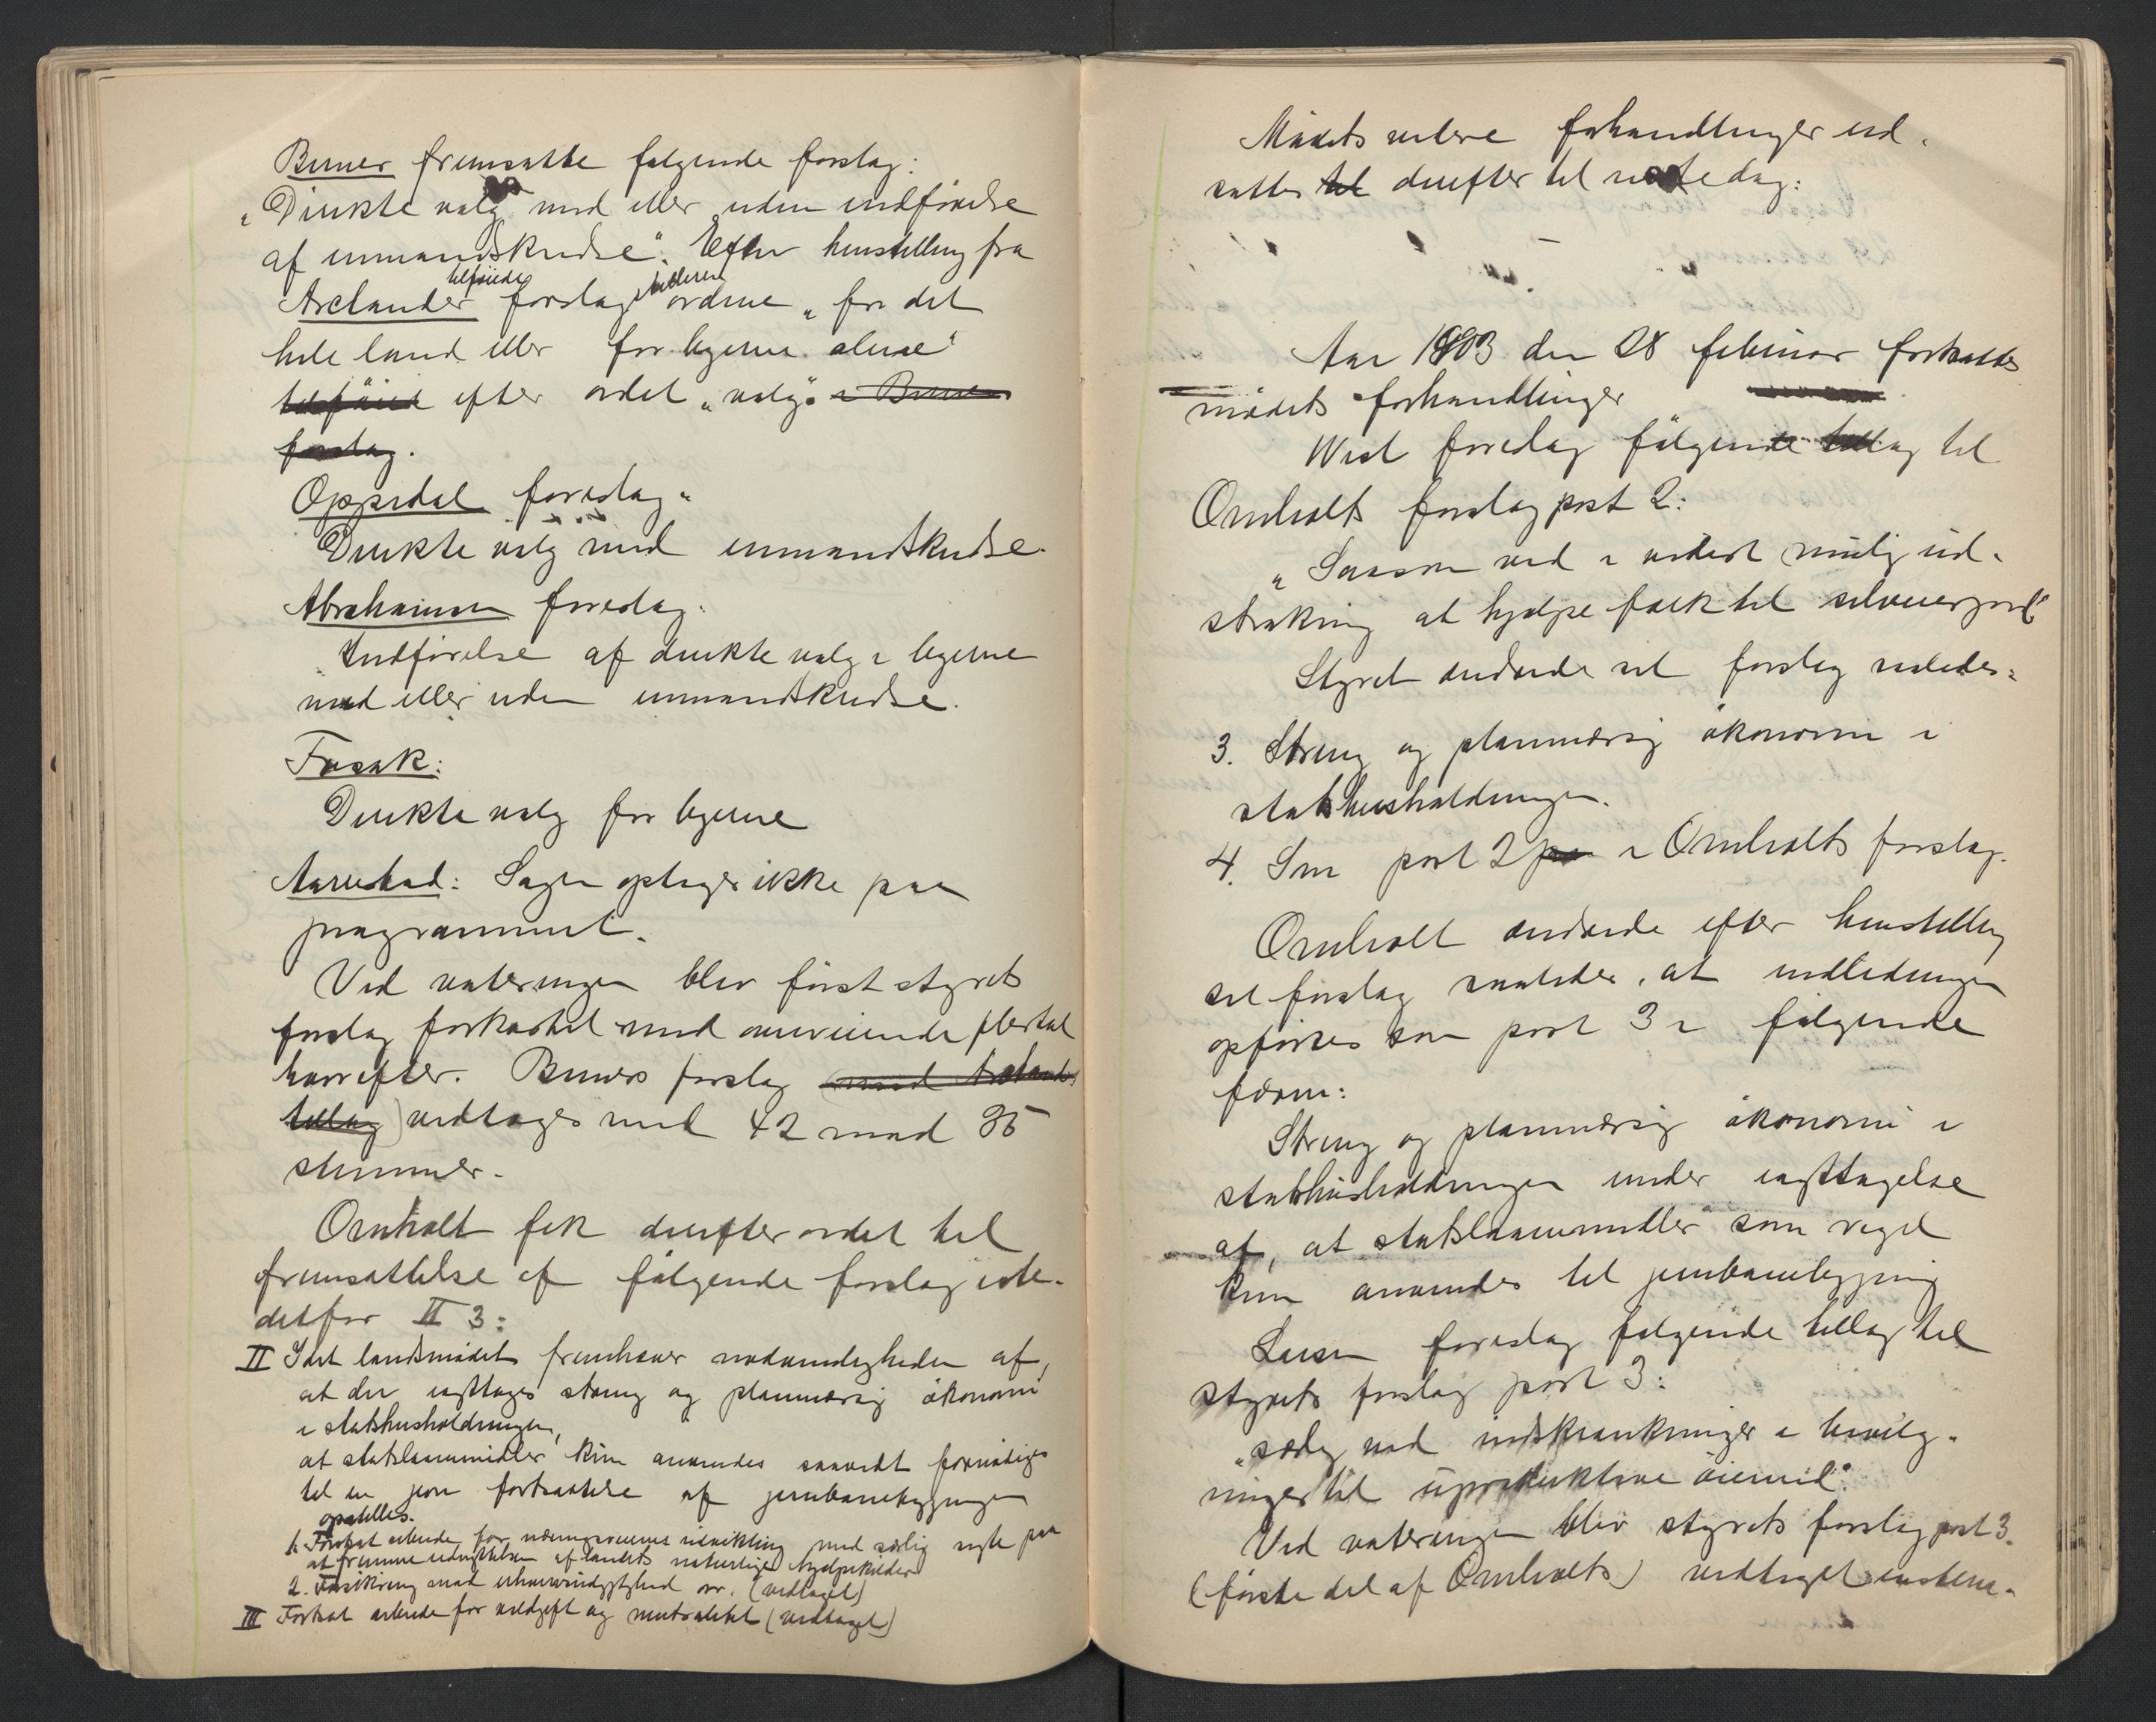 Berner fremsatte følgende forslag:
"Direkte valg med eller uden indførelse
af enmandskredse". Efter henstilling fra
Arctander tilføiede forslagstilleren ordene "for det
hele land eller for byerne alene"
tilføiet efter ordet "valg". i Berners
forslag.
Oppedal foreslog:
Direkte valg med enmandskredse.
Abrahamsen foreslog:
Indførelse af direkte valg i byerne
med eller uden enmandskredse.
Foosnæs:
Direkte valg for byerne
Aarrestad: Sagen optages ikke paa
programmet.
Ved voteringen blev først styrets
forslag forkastet mod overveiende flertal
hvorefter Berners forslag (med Arctanders
tillæg) vedtoges med 42 mod 35
stemmer.
Omholt fik derefter ordet til
fremsættelse af følgende forslag iste-
detfor II 3:
II Idet landsmødet fremhæver nødvendigheden af,
at der iagttages streng og planmæssig økonomi
i statshusholdningen,
at statslaanemidler kun anvendes saavidt fornødiges
til en jevn fortsættelse af jernbanebygningen
opstilles:
1. Fortsat arbeide for næringsveienes udvikling med særlig vegt paa
at fremme udnyttelsen af landets naturlige hjælpekilder
2. Forsikring mod erhvervsudygtighed osv. (vedtaget)
III Fortsat arbeide for voldgift og neutralitet (vedtaget)
Mødets videre forhandlinger ud-
sattes til derefter til næste dag.
Aar 1903 den 28 februar fortsattes
mødets forhandlinger
Wist foreslog følgende tillæg til
Omholts forslag post 2:
"Saasom ved i videst mulig ud-
strækning at hjælpe folk til selveierjord"
Styret ændrede sit forslag saaledes:
3. Streng og planmæssig økonomi i
statshusholdningen.
4. Som post 2 i Omholts forslag.
Omholt ændrede efter henstilling
sit forslag saaledes, at indledningen
opføres som post 3 i følgende
form:
Streng og planmæssig økonomi i
statshusholdningen under iagttagelse
af, at statslaanemidler som regel
kun anvendes til jernbanebygning
Larsen foreslog følgende tillæg til
styrets forslag post 3:
"særlig ved indskrænkninger i bevilg-
ninger til uproduktive øiemed".
Ved voteringen blev styrets forslag post 3.
(første del af Omholts) vedtaget enstem-